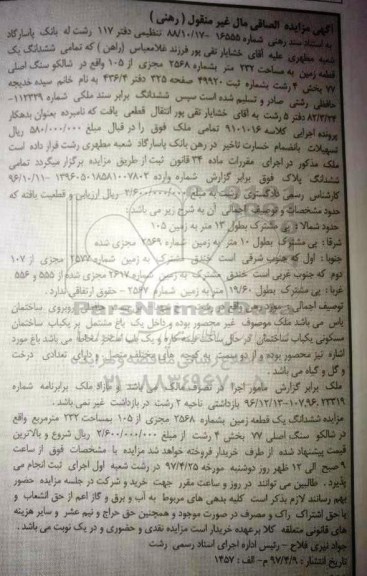 آگهی مزایده الصاقی مال غیر منقول ( رهنی )
به استناد سند رهنی شماره ۱۶۵۵۵ - ۸۸/۱۰/۱۷ تنظیمی دفتر ۱۱۷ رشت له بانک پاسارگاد
شعبه مطهری علیه آقای خشایار تقی پور فرزند غلامعباس (راهن) که تمامی ششدانگ یک
قطعه زمین به مساحت ۲۳۲ متر بشماره ۲۵۶۸ مجزی از ۱۰۵ واقع در شالکو سنگ اصلی
۷۷ بخش ۴ رشت بشماره ثبت ۴۹۹۲۰ صفحه ۲۲۵ دفتر ۴۳۶/۴ به نام خانم سیده خدیجه
حافظی رشتی صادر و تسلیم شده است سپس ششدانگ برابر سند ملکی شماره ۱۱۲۳۲۹-
۸۲/۳/۲۴ دفتر ۵ رشت به آقای خشایار تقی پور انتقال قطعی یافت که نامبرده بعنوان بدهکار
پرونده اجرایی کلاسه ۹۱۰۱۰۱۶ تمامی ملک فوق را در قبال مبلغ ۵۸۰/۰۰۰/۰۰۰ ریال
تسهیلات بانضمام خسارت تاخیر در رهن بانک پاسارگاد شعبه مطهری رشت قرار داده است
ملک مذکور در اجرای مقررات ماده ۳۴ قانون ثبت از طریق مزایده برگزار میگردد تمامی
ششدانگ پلاک فوق برابر گزارش شماره وارده ۱۳۹۶۰۵۰۱۸۵۸۱۰۰۷۸۰۲ - ۹۶/۱۰/۱۱
کارشناس رسمی دادگستری رشت به مبلغ ۲/۶۰۰/۰۰۰/۰۰۰ ریال ارزیابی و قطعیت یافته که
حدود مشخصات و توصیف اجمالی آن به شرح زیر می باشد :
حدود شمالا : پی مشترک بطول ۱۳ متر به زمین ۱۰۵
شرقا : پی مشترک بطول ۱۰ متر به زمین شماره ۲۵۶۹ مجزی شده
جنوبا : اول که جنوب شرقی است خندق مشترک به زمین شماره ۲۵۷۷ مجزی از ۱۰۷
دوم که جنوب غربی است خندق مشترک به زمین شماره ۲۶۱۷ مجزی شده از ۵۵۵ و ۵۵۶
غربا : پی مشترک بطول ۱۹/۶۰ متر به زمین شماره ۲۵۶۷ - حقوق ارتفاقی ندارد .
توصیف اجمالی : روبروی ساختمان
یاس می باشد ملک موصوف غیر محصور بوده و داخل یک باغ مشتمل بر یکباب ساختمان
مسکونی یکباب ساختمان در حال ساخت نیمه کاره و یک باب استخر می باشد باغ مورد
اشاره نیز محصور بوده از دو سمت به کوچه های مختلف متصل و دارای تعدادی درخت
و گل و گیاه می باشد .
ملک برابر گزارش مامور اجرا در تصرف مالک می باشد و مازاد ملک برابرنامه شماره
۱۰۷۹۶۰۲۳۳۱۹ - ۹۶/۱۲/۱۳ بازداشتی ناحیه ۲ رشت در بازداشت غیر نمی باشد .
مزایده ششدانگ یک قطعه زمین بشماره ۲۵۶۸ مجزی از ۱۰۵ بمساحت ۲۳۲ مترمربع واقع
در شالکو سنگ اصلی ۷۷ بخش ۴ رشت از مبلغ ۲/۶۰۰/۰۰۰/۰۰۰ ریال شروع و بالاترین
قیمت پیشنهاد شده از طرف خریدار فروخته خواهد شد مزایده با مشخصات فوق از ساعت
۹ صبح الی ۱۲ ظهر روز دوشنبه مورخه ۹۷/۴/۲۵ در رشت شعبه اول اجرای ثبت انجام می
پذیرد . طالبین می توانند در روز و ساعت مقرر جهت خرید و شرکت در جلسه مزایده حضور
بهم رسانند لازم بذکر است کلیه بدهی های مربوط به آب و برق و گاز اعم از حق انشعاب و
یا حق اشتراک راک و مصرف در صورت موجود و همچنین حق حراج و نیم عشر و سایر هزینه
های قانونی متعلقه کلا برعهده خریدار است مزایده نقدی و حضوری و در یک نوبت می باشد .
جواد نیری فلاح - رئیس اداره اجرای اسناد رسمی رشت
تاریخ انتشار : ۹۷/۴/۹ م - الف : ۱۴۵۷
ParsNamadData
۰۲۱-۸۸۳۴۹۶۷۰